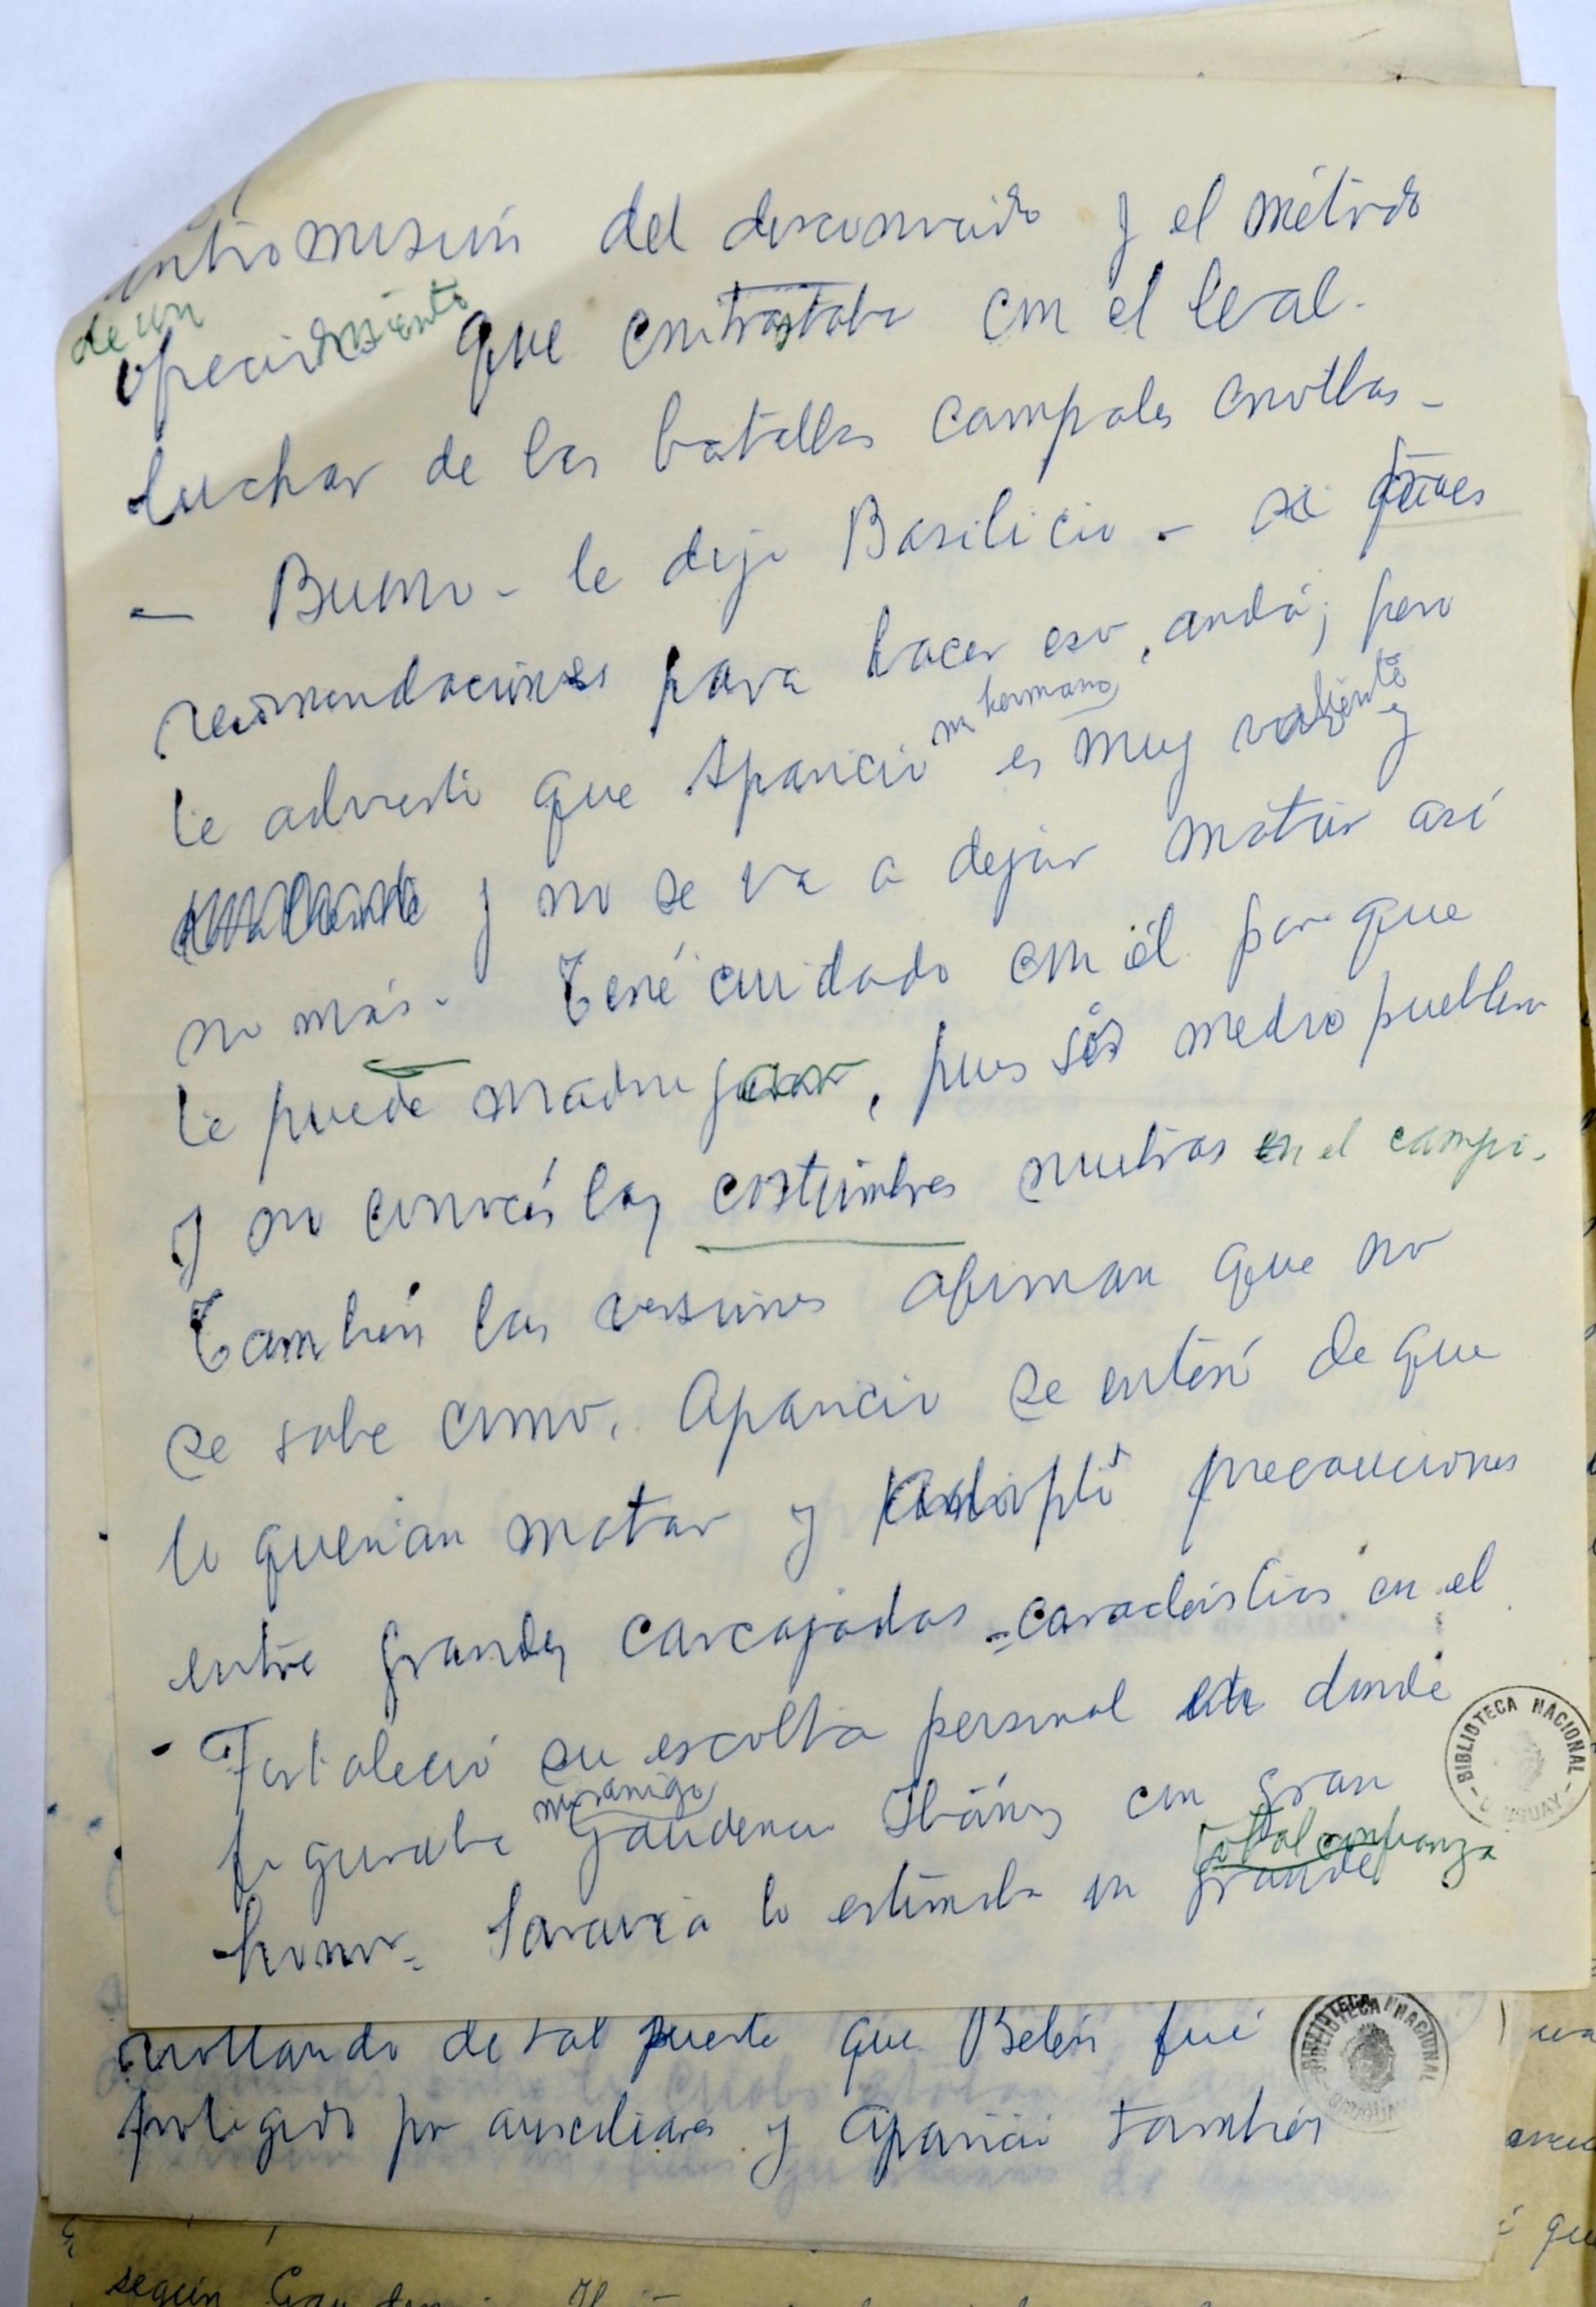 intromisión del desconocido y el método
de un
ofrecimiento que contrastaba con el leal
luchar de las batallas campales criollas -
— Bueno - le dijo Basilicio - si traes
recomendaciones para hacer eso, andá; pero
mi hermano
te advierto que Aparicio es muy valiente y
y no se va a dejar matar así
no más. Tené cuidado con él porque
te puede madrugar, pues sós medio pueblero
y no conocés las costumbres nuestras en el campo.
También las versiones afirman que no
se sabe como, Aparicio se enteró de que
lo querían matar y adoptó precauciones
entre grandes carcajadas - características en el
- Fortaleció su escolta personal en donde
mi amigo
figuraba Gaudencio Ibáñez con gran
total confianza
honor. Saravia lo estimaba en grande
BIBLIOTECA NACIONAL
- URUGUAY -
rrollando de tal suerte que Belén fué
protegido por auxiliares y Aparicio también
BIBLIOTECA NACIONAL
URUGUAY
según